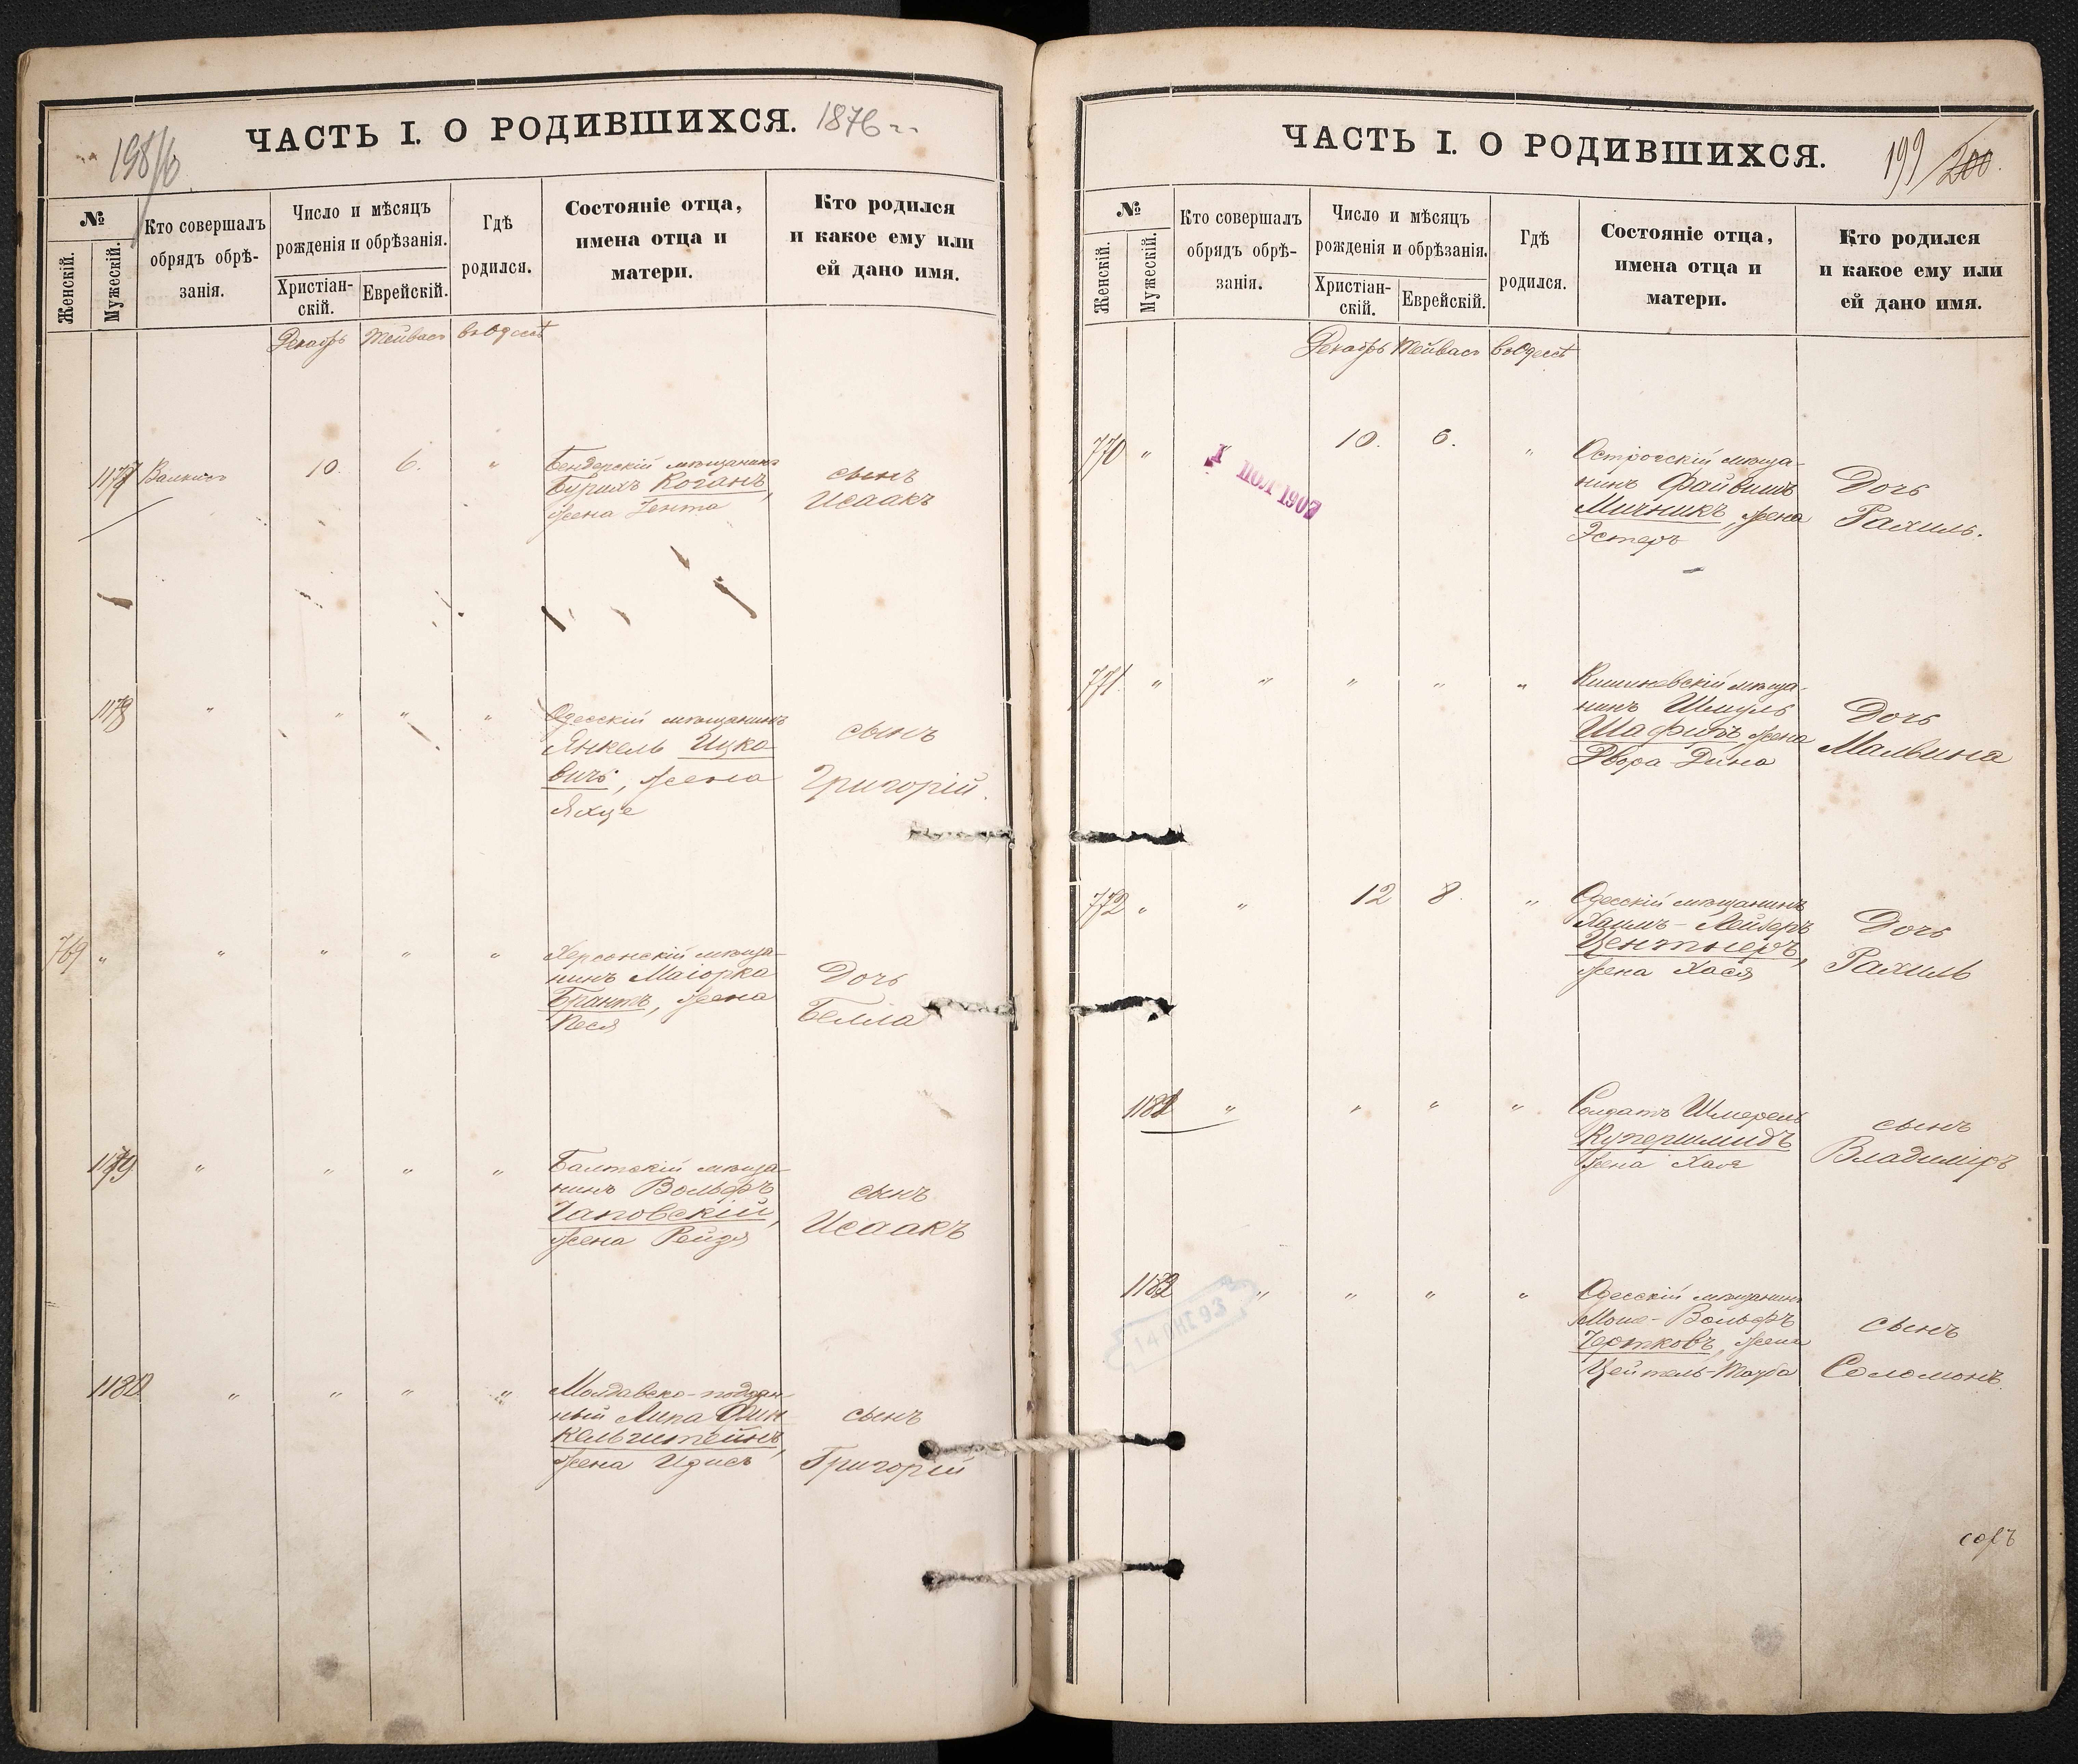 ЧАСТЬ I. О РОДИВШИХСЯ. 1876 г.
198/б
№
Женскій.
Мужескій.
Кто совершалъ
обрядъ обрѣ-
занія.
Число и мѣсяцъ
рожденія и обрѣзанія.
Христіан-
скій.
Еврейскій.
Гдѣ
родился.
Состояніе отца,
имена отца и
матери.
Кто родился
и какое ему или
ей дано имя.
Декабрь Тейвасъ въ Одессѣ
1177 10. 6. "
Бендерскій мѣщанинъ
Бурихъ Коганъ,
жена Зента
сынъ
Исаакъ
1178 " " " " "
Одесскій мѣщанинъ
Янкель Ицко-
вичъ, жена
сынъ
Григорій.
769 " " " " "
Херсонскій мѣща-
нинъ Маіорка
Брантъ, жена
Песя
Дочь
Белла
1179 " " " "
Балтскій мѣща-
нинъ Вольфъ
Чаповскій,
жена Рейзя
сынъ
Исаакъ
1180 " " " "
Молдавско-поддан-
ный Липа Фин-
кельштейнъ,
жена Идисъ
сынъ
Григорій
ЧАСТЬ I. О РОДИВШИХСЯ.
199/200.
№
Женскій.
Мужескій.
Кто совершалъ
обрядъ обрѣ-
занія.
Число и мѣсяцъ
рожденія и обрѣзанія.
Христіан-
скій.
Еврейскій.
Гдѣ
родился.
Состояніе отца,
имена отца и
матери.
Кто родился
и какое ему или
ей дано имя.
Декабрь Тейвасъ въ Одессѣ
770 " 10. 6. "
1907
Острогскій мѣща-
нинъ Файвишъ
Мичникъ, жена
Эстеръ
Дочь
Рахиль.
771 " " " " "
Кишиневскій мѣща-
нинъ Шмуль
Шафиръ, жена
Двора-Дина
Дочь
Мальвина
772 " " 12 8. "
Одесскій мѣщанинъ
Хаимъ-Лейзеръ
Центнеръ,
жена Хася
Дочь
Рахиль
1181 " " " "
Солдатъ Шмерель
Купершмидъ
жена Хая
сынъ
Владиміръ
1182 " " " "
14 ОКТ 93
Одесскій мѣщанинъ
Моше-Вольфъ
Чертковъ, жена
Цейтель-Тауба
сынъ
Соломонъ.